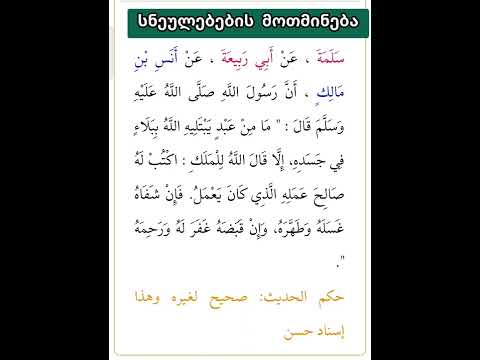 სნეულებების მოთმინება
سَلَمَةَ ، عَنْ أَبِي رَبِيعَةَ ، عَنْ أَنَسِ بْنِ
مَالِكٍ ، أَنَّ رَسُولَ اللَّهِ صَلَّى اللَّهُ عَلَيْهِ
وَسَلَّمَ قَالَ : " مَا مِنْ عَبْدٍ يَبْتَلِيهِ اللَّهُ بِبَلَاءٍ
فِي جَسَدِهِ، إِلَّا قَالَ اللَّهُ لِلْمَلَكِ : اكْتُبْ لَهُ
صَالِحَ عَمَلِهِ الَّذِي كَانَ يَعْمَلُ. فَإِنْ شَفَاهُ
غَسَلَهُ وَطَهَّرَهُ، وَإِنْ قَبَضَهُ غَفَرَ لَهُ وَرَحِمَهُ
".
حكم الحديث: صحيح لغيره وهذا
إسناد حسن